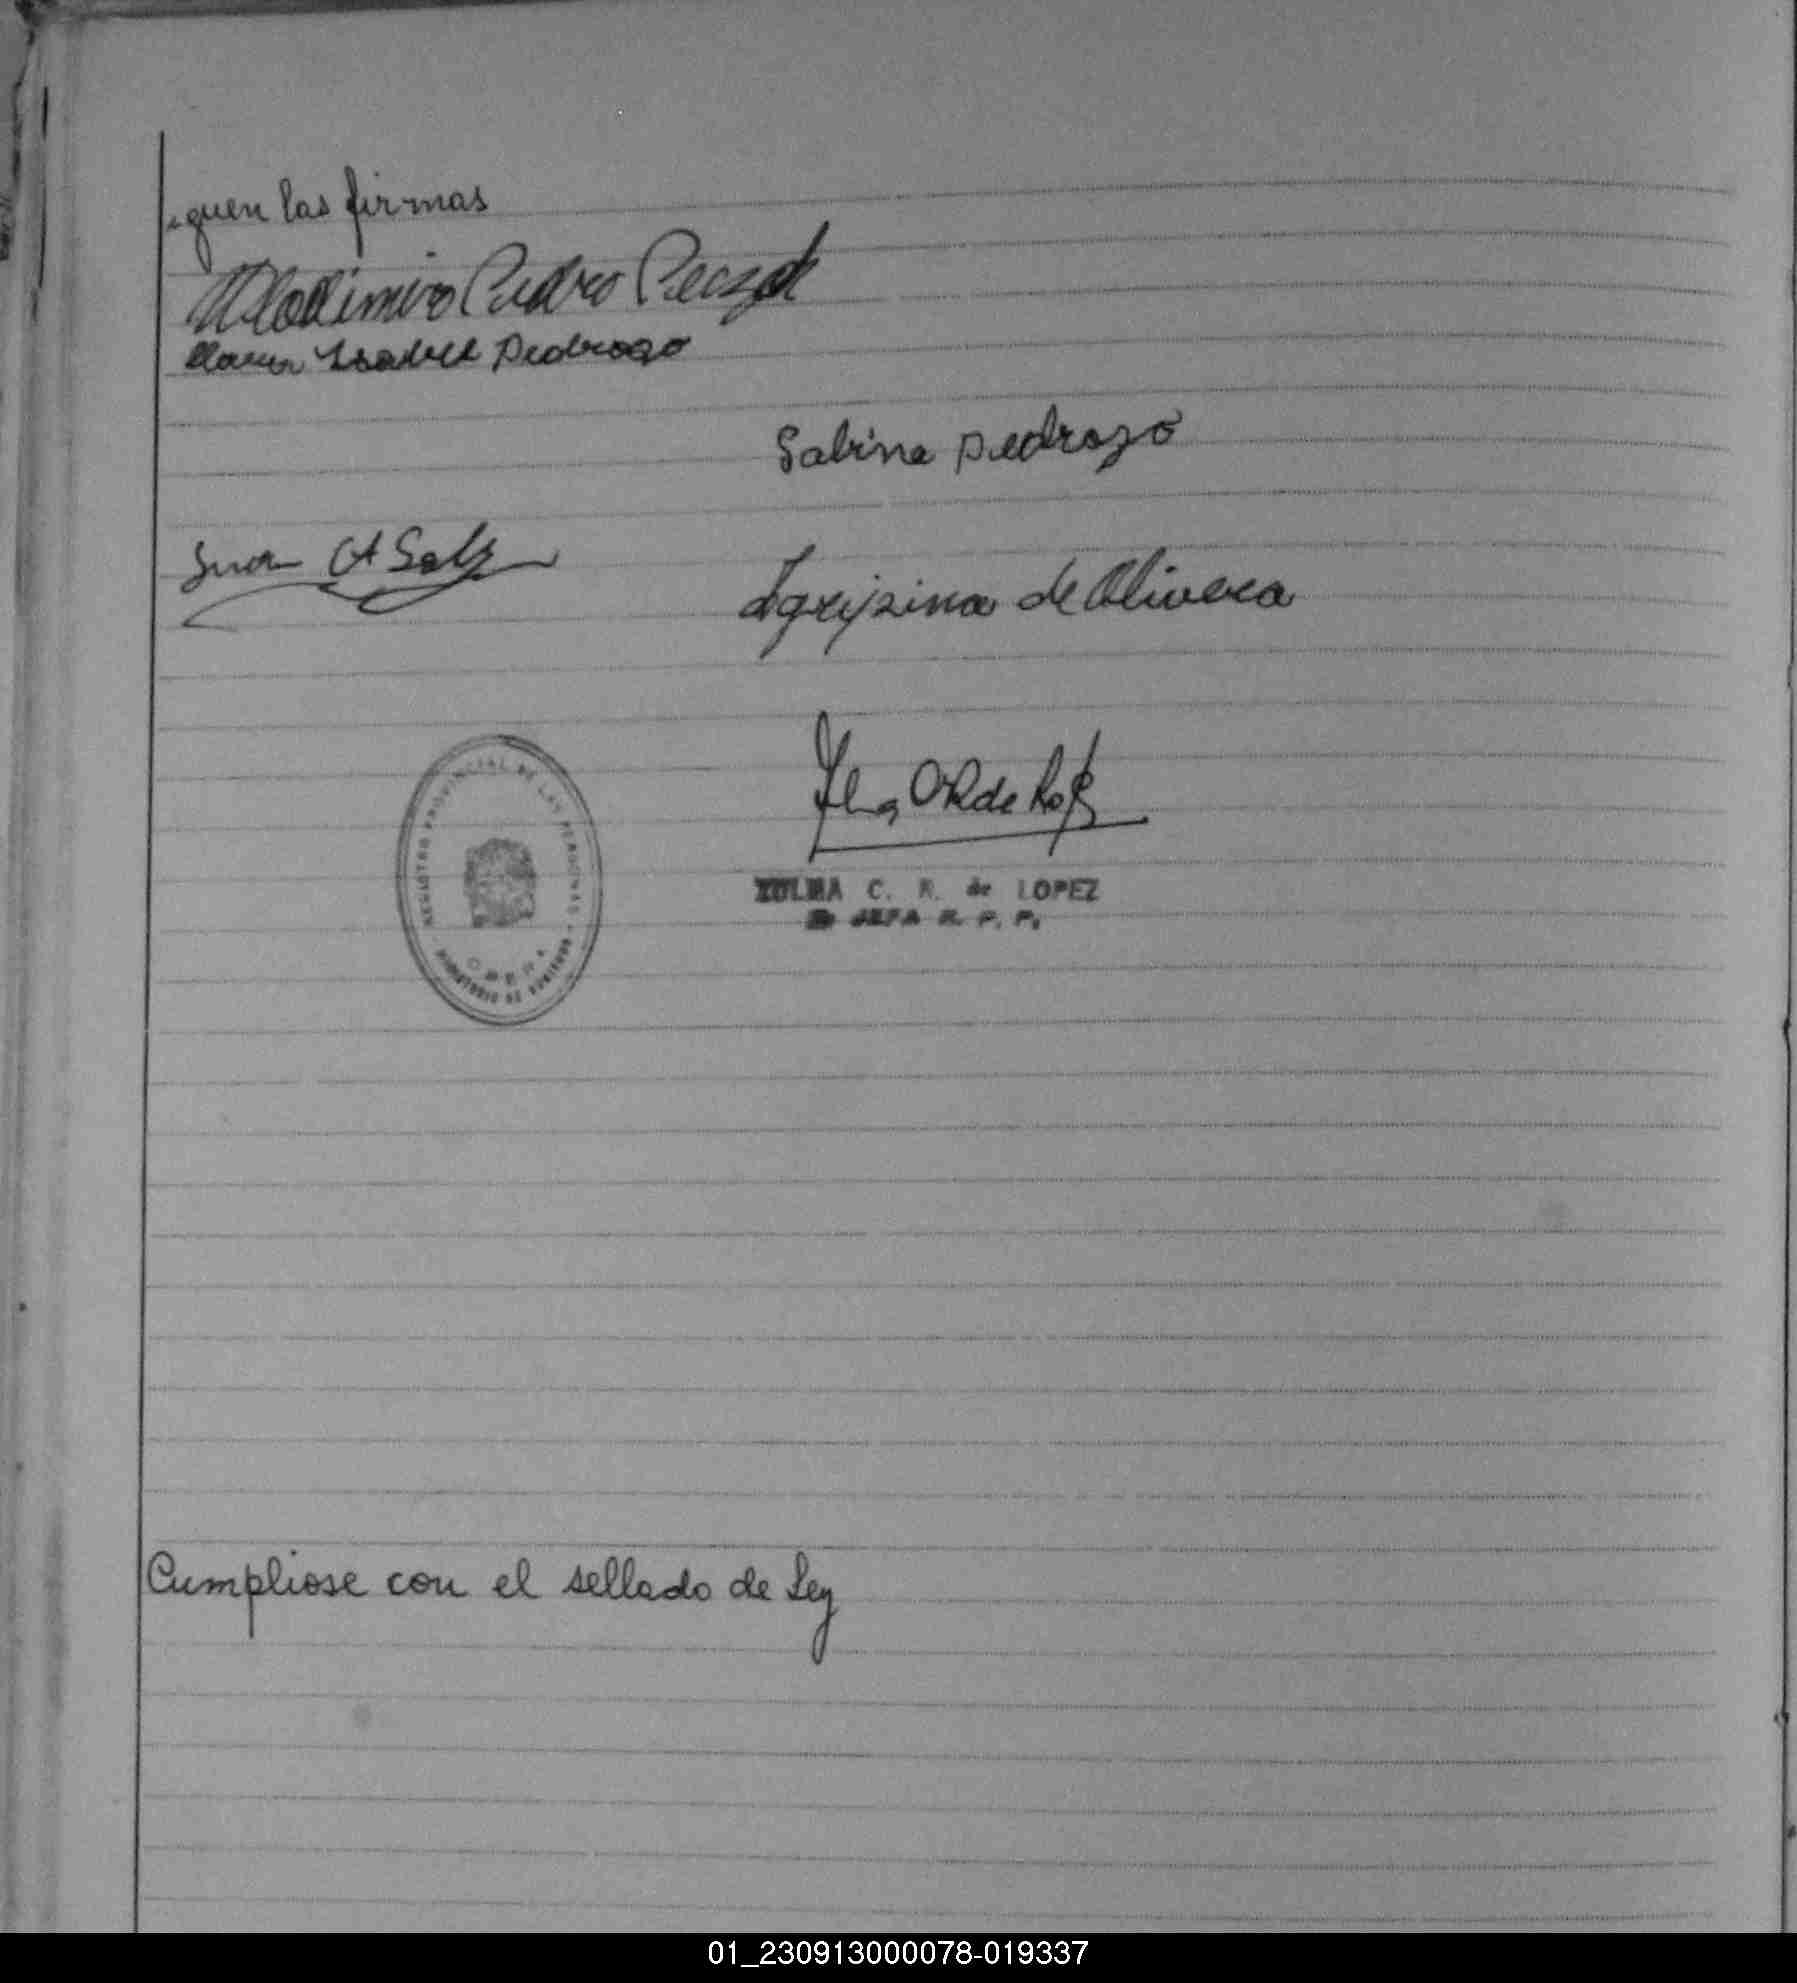 siguen las firmas
Wlodimiro Pedro
Maria Isabel Pedrozo
Sabina Pedrozo
Juan A
Agripina de Olivera
REGISTRO PROVINCIAL DE LAS PERSONAS
OBERA
ZULMA C. R. de LOPEZ
JEFA R. P. P.
Cumpliose con el sellado de Ley
01_230913000078-019337